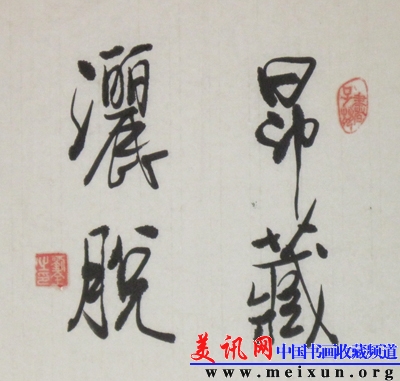 昂藏
灑脫
美讯网 中国书画收藏频道
www.meixun.org